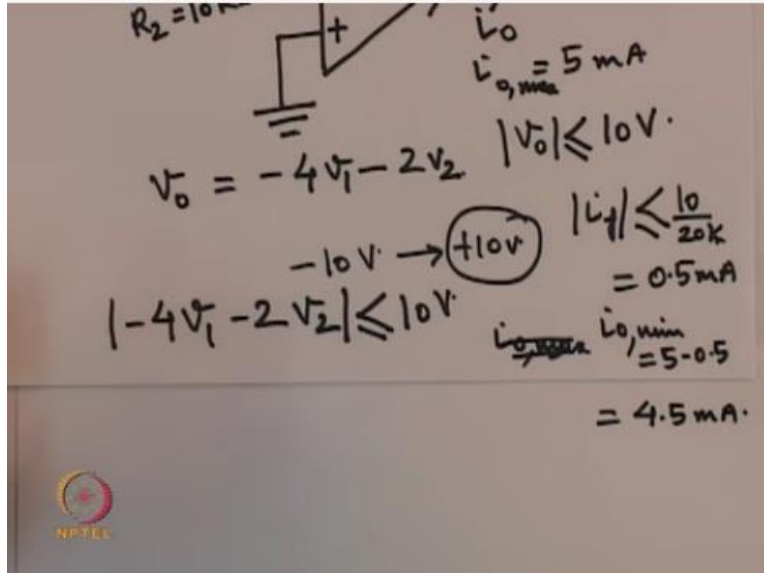 R₂ = 10K
+
i₀
i₀,max = 5 mA
|v₀| ≤ 10V.
v₀ = -4v₁ - 2v₂
|i_f| ≤ 10/20K
-10V → +10V
= 0.5mA
|-4v₁ - 2v₂| ≤ 10V
i₀,min
= 5-0.5
= 4.5 mA.
NPTEL